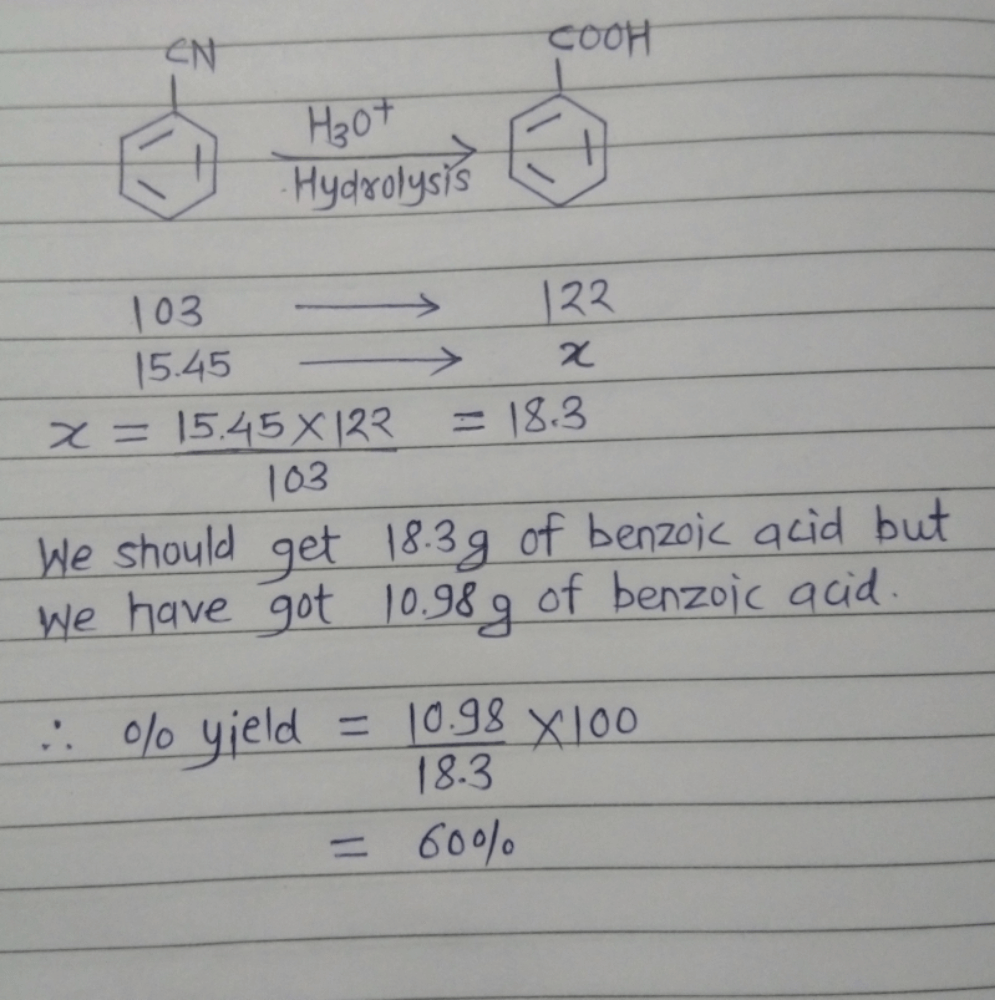 CN COOH
H3O+
Hydrolysis
103 ⟶ 122
15.45 ⟶ x
x = 15.45 X 122 = 18.3
103
We should get 18.3g of benzoic acid but
We have got 10.98g of benzoic acid.
∴ % yield = 10.98 X 100
18.3
= 60%